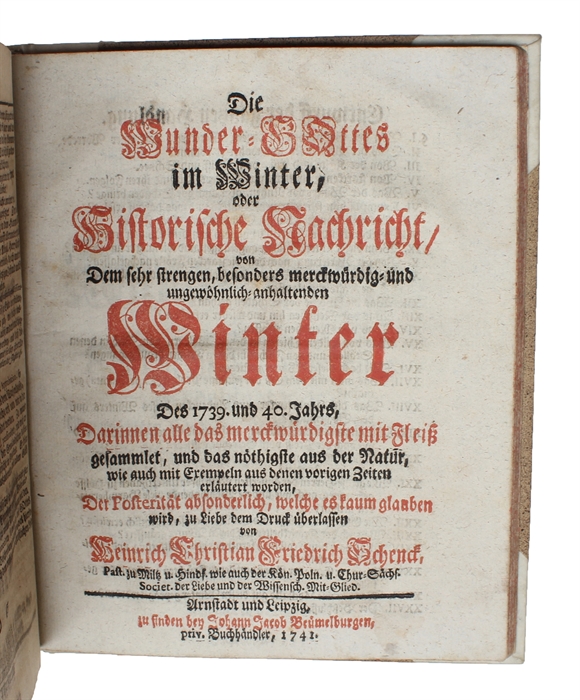 Die
Wunder-GOttes
im Winter,
oder
Historische Nachricht,
von
Dem sehr strengen, besonders merckwürdig- und
ungewöhnlich-anhaltenden
Winter
Des 1739. und 40. Jahrs,
Darinnen alle das merckwürdigste mit Fleiß
gesammlet, und das nöthigste aus der Natur,
wie auch mit Exempeln aus denen vorigen Zeiten
erläutert worden,
Der Posterität absonderlich, welche es kaum glauben
wird, zu Liebe dem Druck überlassen
von
Heinrich Christian Friedrich Schenck,
Past. zu Miltz u. Hindf. wie auch der Kön. Poln. u. Chur-Sächs.
Societ. der Liebe und der Wissensch. Mit-Glied.
Arnstadt und Leipzig,
zu finden bey Johann Jacob Beumelburgen,
priv. Buchhändler, 1741.